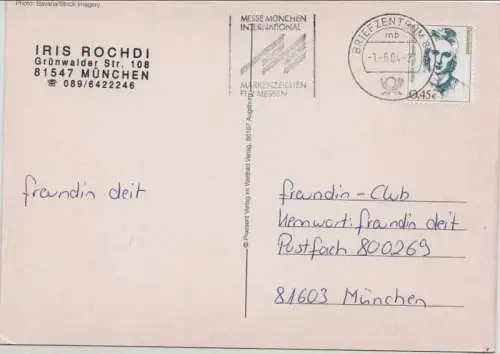 Photo: Bavaria/Stock Imagery
MESSE MÜNCHEN
INTERNATIONAL
MARKENZEICHEN
FÜR MESSEN
BRIEFZENTRUM 8
mb
-1.-6.04-2
0,45€
IRIS ROCHDI
Grünwalder Str. 108
81547 MÜNCHEN
☎ 089/6422246
freundin deit
Präsent Verlag im Weltbild Verlag, 86167 Augsburg
freundin-Club
Kennwort: freundin deit
Postfach 800269
81603 München